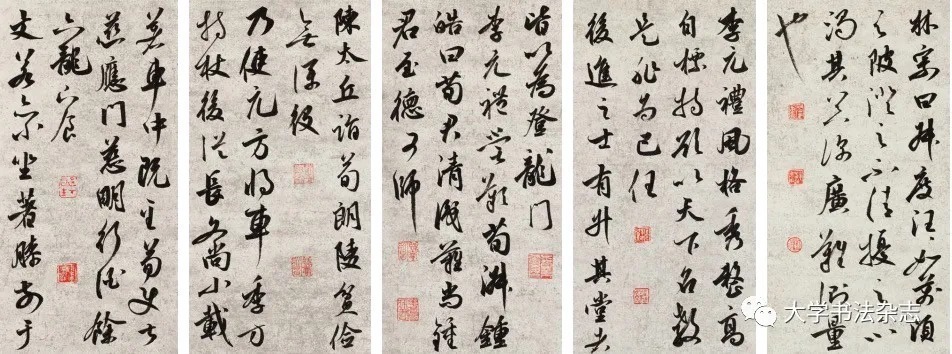 林宗曰叔度汪汪如萬頃
之陂澄之不清擾之不
濁其器深廣難測量
也
李元禮風格秀整高
自標持欲以天下名教
是非為己任
後進之士有升其堂者
皆以為登龍門
李元禮嘗歎荀淑鍾
皓曰荀君清識難尚鍾
君至德可師
陳太丘詣荀朗陵貧儉
無僕役
乃使元方將車季方
持杖後從長文尚小載
著車中既至荀使叔
慈應門慈明行酒餘
六龍下食
文若亦坐著膝前于
大学书法杂志